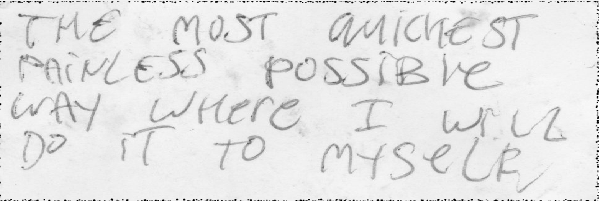 THE MOST QUICKEST
PAINLESS POSSIBLE
WAY WHERE I WILL
DO IT TO MYSELF